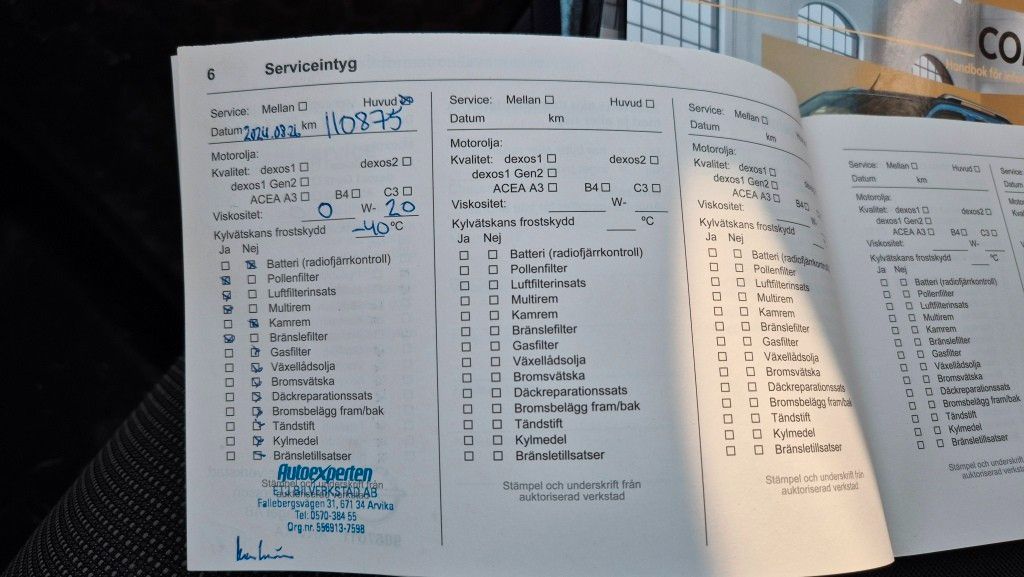 6 Serviceintyg
Service: Mellan ☐ Huvud ☒
Datum 2024.08.26 km 110875
Motorolja:
Kvalitet: dexos1 ☐ dexos2 ☐
dexos1 Gen2 ☐
ACEA A3 ☐ B4 ☐ C3 ☐
Viskositet: 0 W- 20
Kylvätskans frostskydd -40 °C
Ja Nej
☐ ☒ Batteri (radiofjärrkontroll)
☒ ☐ Pollenfilter
☒ ☐ Luftfilterinsats
☒ ☐ Multirem
☐ ☒ Kamrem
☒ ☐ Bränslefilter
☐ ☒ Gasfilter
☐ ☒ Växellådsolja
☐ ☒ Bromsvätska
☐ ☒ Däckreparationssats
☐ ☒ Bromsbelägg fram/bak
☐ ☒ Tändstift
☐ ☒ Kylmedel
☐ ☒ Bränsletillsatser
Autoexperten
Stämpel och underskrift från
BILVERKSTAD AB
Fallebergsvägen 31, 671 34 Arvika
Tel: 0570-384 55
Org.nr. 556913-7598
Service: Mellan ☐ Huvud ☐
Datum km
Motorolja:
Kvalitet: dexos1 ☐ dexos2 ☐
dexos1 Gen2 ☐
ACEA A3 ☐ B4 ☐ C3 ☐
Viskositet: W-
Kylvätskans frostskydd °C
Ja Nej
☐ ☐ Batteri (radiofjärrkontroll)
☐ ☐ Pollenfilter
☐ ☐ Luftfilterinsats
☐ ☐ Multirem
☐ ☐ Kamrem
☐ ☐ Bränslefilter
☐ ☐ Gasfilter
☐ ☐ Växellådsolja
☐ ☐ Bromsvätska
☐ ☐ Däckreparationssats
☐ ☐ Bromsbelägg fram/bak
☐ ☐ Tändstift
☐ ☐ Kylmedel
☐ ☐ Bränsletillsatser
Stämpel och underskrift från
auktoriserad verkstad
Service: Mellan ☐
Datum km
Motorolja:
Kvalitet: dexos1 ☐
dexos1 Gen2 ☐
ACEA A3 ☐ B4
Viskositet:
Kylvätskans frostskydd
Ja Nej
☐ ☐ Batteri (radiofjärrkontroll)
☐ ☐ Pollenfilter
☐ ☐ Luftfilterinsats
☐ ☐ Multirem
☐ ☐ Kamrem
☐ ☐ Bränslefilter
☐ ☐ Gasfilter
☐ ☐ Växellådsolja
☐ ☐ Bromsvätska
☐ ☐ Däckreparationssats
☐ ☐ Bromsbelägg fram/bak
☐ ☐ Tändstift
☐ ☐ Kylmedel
☐ ☐ Bränsletillsatser
Stämpel och underskrift från
auktoriserad verkstad
Service: Mellan ☐ Huvud ☐
Datum km
Motorolja:
Kvalitet: dexos1 ☐ dexos2 ☐
dexos1 Gen2 ☐
ACEA A3 ☐ B4 ☐ C3 ☐
Viskositet: W-
Kylvätskans frostskydd °C
Ja Nej
☐ ☐ Batteri (radiofjärrkontroll)
☐ ☐ Pollenfilter
☐ ☐ Luftfilterinsats
☐ ☐ Multirem
☐ ☐ Kamrem
☐ ☐ Bränslefilter
☐ ☐ Gasfilter
☐ ☐ Växellådsolja
☐ ☐ Bromsvätska
☐ ☐ Däckreparationssats
☐ ☐ Bromsbelägg fram/bak
☐ ☐ Tändstift
☐ ☐ Kylmedel
☐ ☐ Bränsletillsatser
Stämpel och underskrift från
auktoriserad verkstad
Service:
Datum
Handbok för